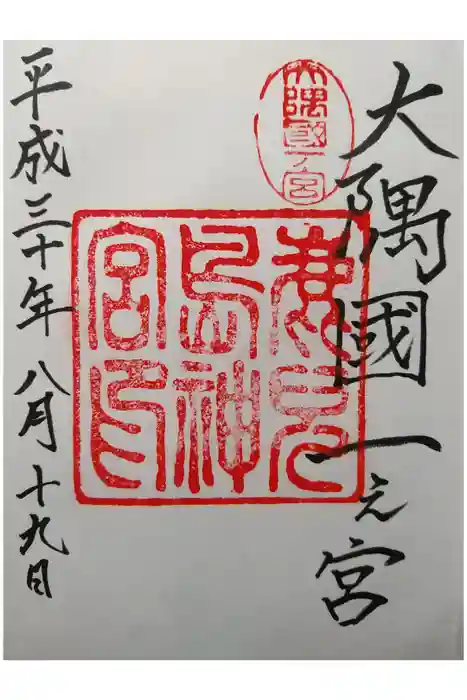 大隅國一之宮
大隅國一ノ宮
鹿兒
島神
宮印
平成三十年八月十九日